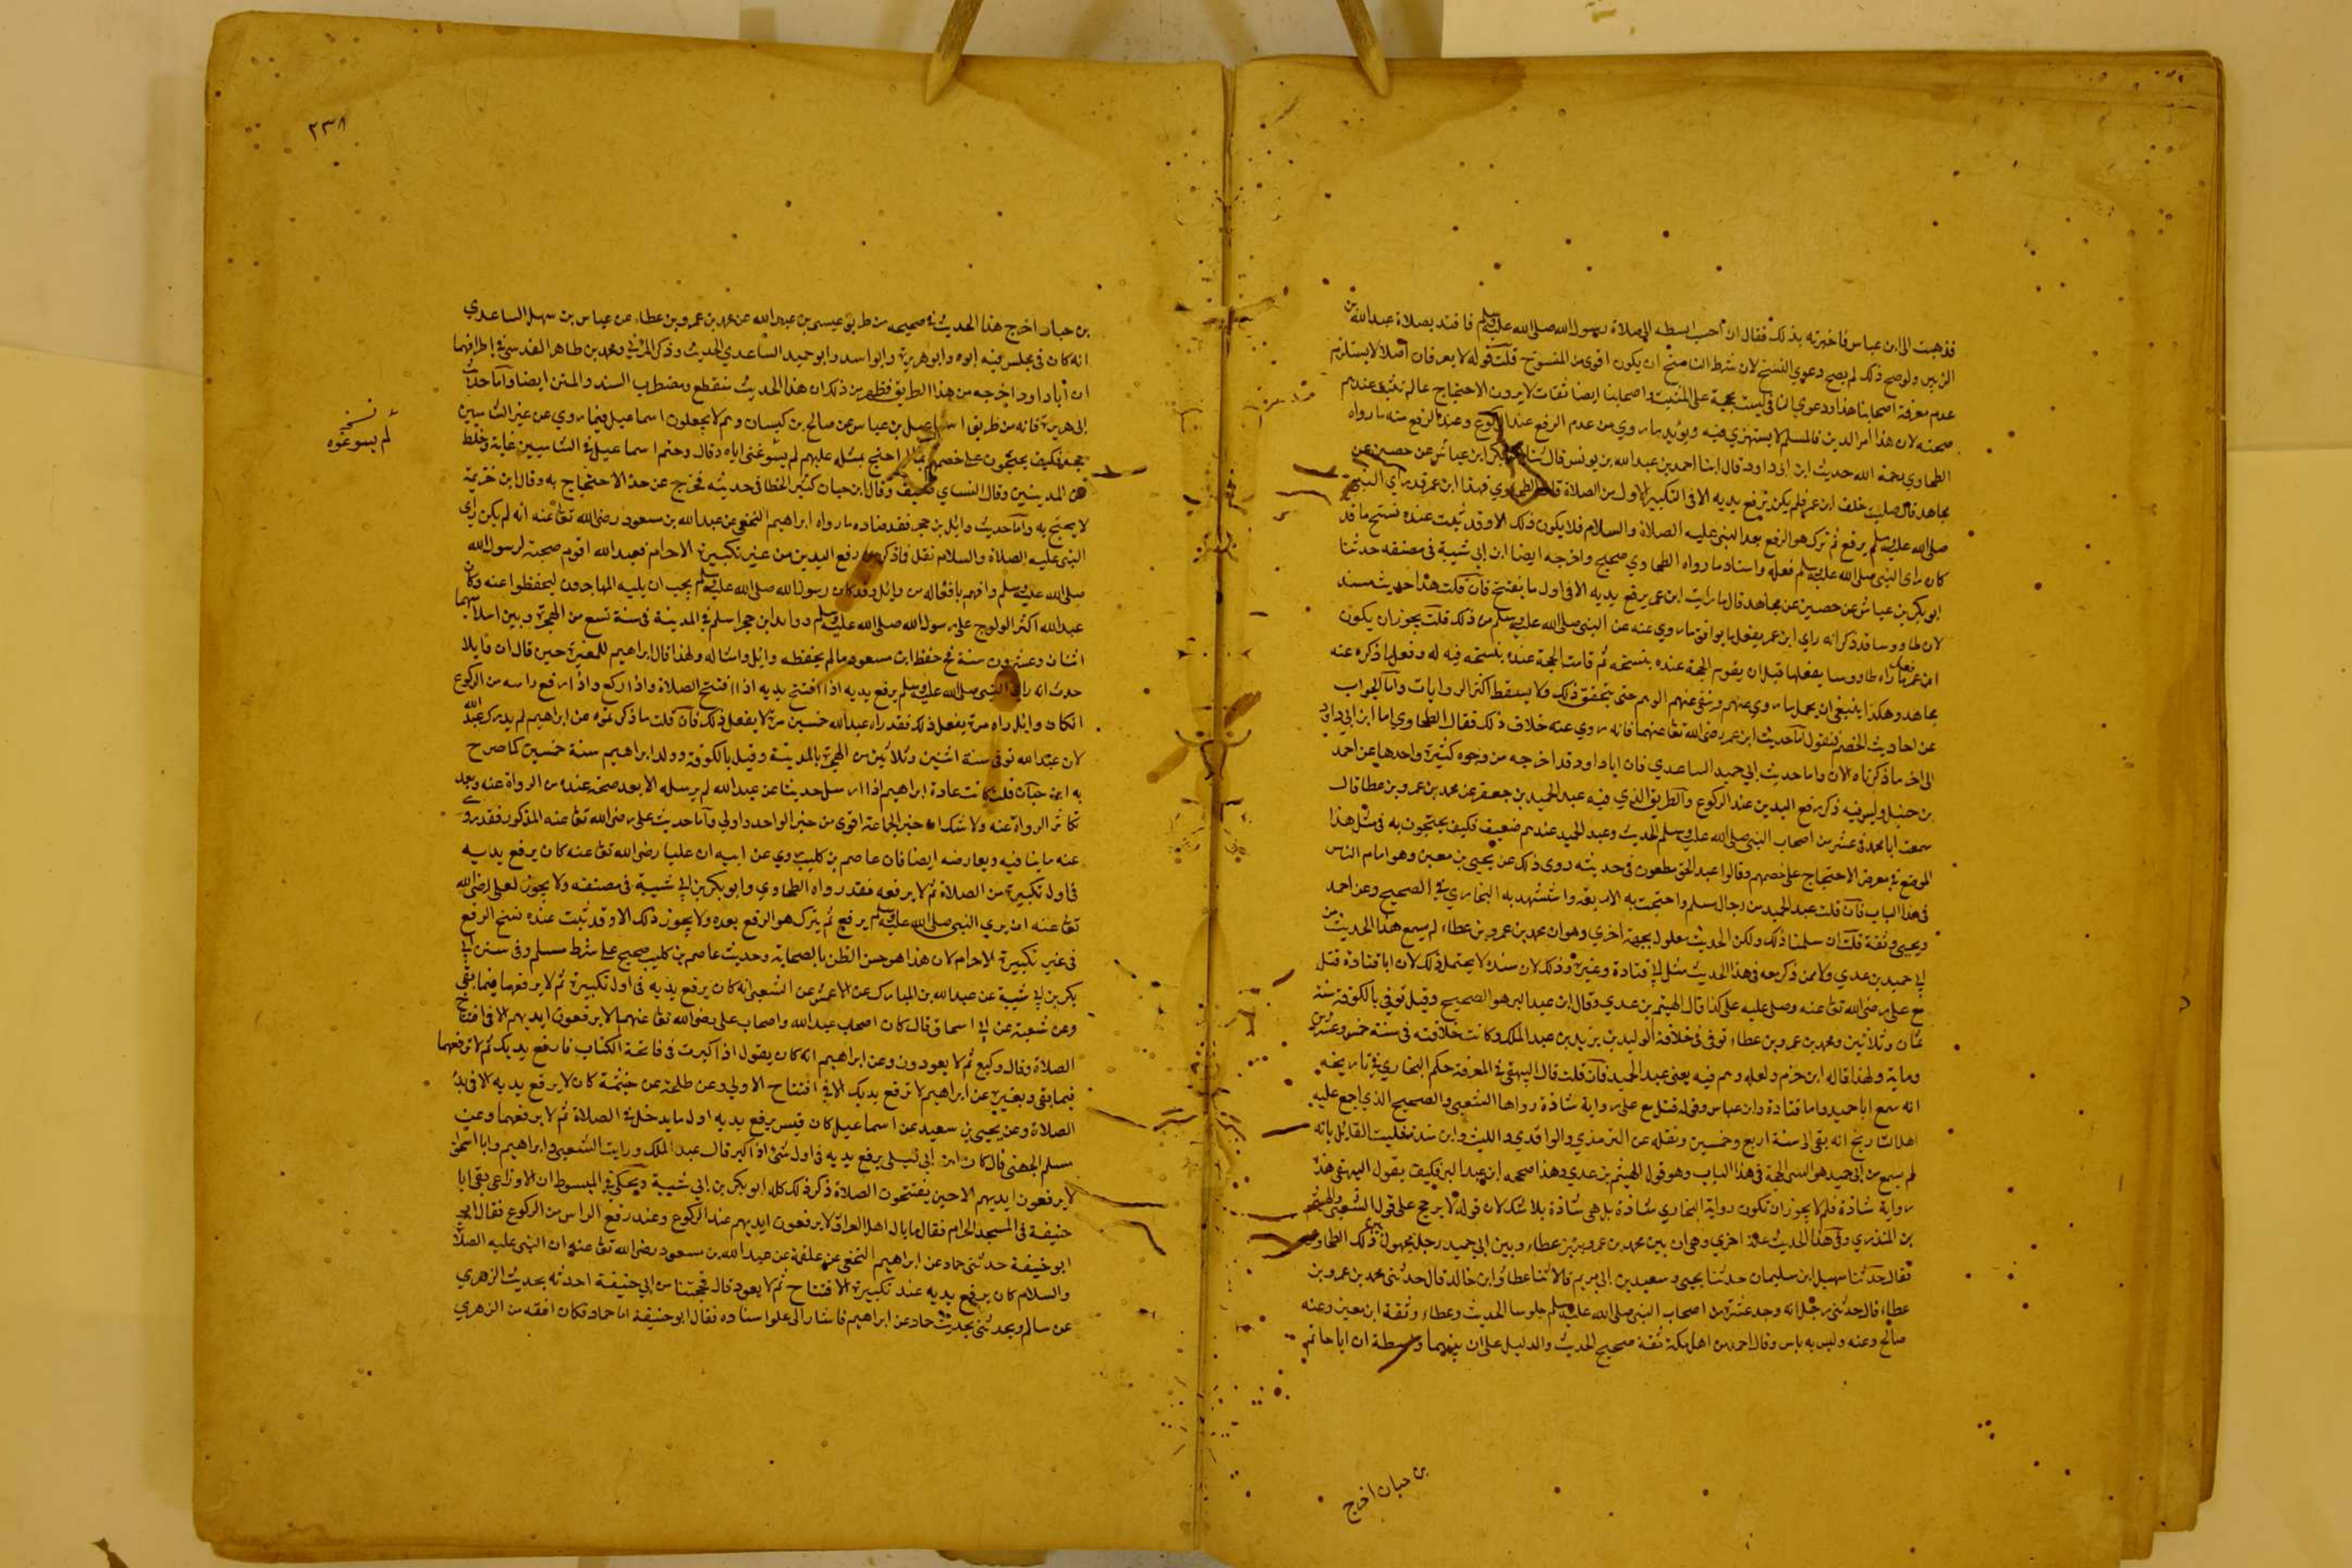 فذهبت الى ابن عباس فاخبرته بذلك فقال ان احب ان تنظر الى صلاة رسول الله صلى الله عليه وسلم فاقتد بصلاة عبد الله بن
الزبير ولو صح ذلك لم يصح دعوي النسخ لان شرط الناسخ ان يكون اقوى من المنسوخ قلت قوله لا يعرفان اصلا لا يستلزم
عدم معرفة اصحابنا هذا ودعوي النافي ليست بحجة على المثبت واصحابنا ايضا ثقات لا يرون الاحتجاج بما لم تثبت عندهم
صحته لان هذا امر الدين فالمسلم لا يستهزي فيه ويؤيد ما روي من عدم الرفع عند الركوع وعند الرفع منه ما رواه
الطحاوي رحمة الله حديث ابن ابي داود قال انا احمد بن عبد الله بن يونس قال ثنا ابو بكر ابن عياش عن حصين عن
مجاهد قال صليت خلف ابن عمر فلم يكن يرفع يديه الا في التكبير الاول من الصلاة قال الطحاوي فهذا ابن عمر قد راي النبي
صلى الله عليه وسلم يرفع ثم ترك هو الرفع بعد النبي عليه الصلاة والسلام فلا يكون ذلك الا وقد ثبت عنده نسخ ما قد
كان راى النبي صلى الله عليه وسلم فعله واسناد ما رواه الطحاوي صحيح واخرجه ايضا ابن ابي شيبة في مصنفه حدثنا
ابو بكر بن عياش عن حصين عن مجاهد قال ما رايت ابن عمر يرفع يديه الا في اول ما يفتتح فان قلت هذا حديث مسند
لان طاووسا قد ذكر انه راي ابن عمر يفعل ما يوافق ما روي عنه عن النبي صلى الله عليه وسلم من ذلك قلت يجوز ان يكون
ابن عمر فعل ما راه طاووسا يفعلها قبل ان يقوم الحجة عنده بنسخه ثم قامت الحجة عنده بنسخه فيه له وفعل ما ذكره عنه
مجاهد وهكذا ينبغي ان يحمل ما روي عنهم وينفى عنهم الوهم حتى يتحقق ذلك ولا يسقط اكثر الروايات واما الجواب
عن احاديث الخصم فنقول اما حديث ابن عمر رضى الله تعا عنهما فانه روي عنه خلاف ذلك فقال الطحاوي اما ابن ابي داود
الى اخر ما ذكرناه الان واما حديث ابي حميد الساعدي فان ابا داود قد اخرجه من وجوه كثيرة واحدها عن احمد
بن حنبل وليس فيه ذكر رفع اليدين عند الركوع والطريق الذي فيه عبد الحميد بن جعفر عن محمد بن عمرو بن عطا قال
سمعت ابا حميد في عشر من اصحاب النبي صلى الله عليه وسلم الحديث وعبد الحميد عندهم ضعيف فكيف يحتجون به في مثل هذا
الموضع في معرض الاحتجاج على خصمهم وقالوا عبد الحق مطعون في حديثه روى ذلك عن يحيى بن معين وهو امام الناس
في هذا الباب فان قلت عبد الحميد من رجال مسلم واحتجت به الاربعة واستشهد به البخاري في الصحيح وعن احمد
ويحيى وثقة قلت ان سلمنا ذلك ولكن الحديث معلول بجهة اخري وهو ان محمد بن عمرو بن عطاء لم يسمع هذا الحديث من
ابي حميد بن عدي ولا ممن ذكر معه في هذا الحديث مثل ابي قتادة وغيره وذلك لان سنده لا يحتمل ذلك لان ابا قتادة قتل
مع علي رضى الله تعا عنه وصلى عليه علي كذا قال الهيثم بن عدي وقال ابن عبد البر هو الصحيح وقيل توفي بالكوفة سنة
ثمان وثلاثين ومحمد بن عمرو بن عطاء توفي في خلافة الوليد بن يزيد بن عبد الملك وكانت خلافته في سنة خمس وعشرين
ومايه ولهذا قاله ابن حزم ولعله وهم فيه يعنى عبد الحميد فان قلت قال البيهقي في المعرفة حكم البخاري في تاريخه
انه سمع ابا حميد وابا قتادة وابن عباس وقوله قتل مع علي رواية شاذة رواها الشعبي والصحيح الذي اجمع عليه
اهل التاريخ انه بقى الى سنة اربع وخمسين ونقله عن الترمذي والواقدي والليث وابن مندة قلت القائل بانه
لم يسمع من ابي حميد هو الشعبي الحجة في هذا الباب وهو قول الهيثم بن عدي وهذا صححه ابن عبد البر فكيف يقول البيهقي هذه
رواية شاذة فلم لا يجوز ان تكون رواية البخاري شاذة بل هي شاذة بلا شك لان قوله لا يرجح على قول الشعبي والهيثم
بن المنذري وفي هذا الحديث علة اخري وهي ان بين محمد بن عمرو بن عطاء وبين ابي حميد رجل مجهول بين ذلك الطحاوي
فقال حدثنا سهيل ابن سليمان حدثنا يحيى وسعيد بن ابي مريم قالا ثنا عطاف ابن خالد قال حدثني محمد بن عمرو بن
عطاء قال حدثني رجل انه وجد عشرة من اصحاب النبي صلى الله عليه وسلم جلوسا الحديث وعطاء وثقة ابن معين وعنه
صالح وعنه وليس به باس وقال احمد من اهل مكة ثقة صحيح الحديث والدليل على ان بينهما واسطة ان ابا حاتم
بن حبان اخرج
٢٣٨
بن حبان اخرج هذا الحديث في صحيحه من طريق عيسى بن عبد الله عن محمد بن عمرو بن عطاء عن عباس بن سهل الساعدي
انه كان في مجلس فيه ابوه وابو هريرة وابو اسد وابو حميد الساعدي الحديث وذكر المزي ومحمد بن طاهر المقدسي في اطرافهما
ان ابا داود اخرجه من هذا الطريق فظهر من ذكر ان هذا الحديث منقطع ومضطرب السند والمتن ايضا واما حديث
ابي هريرة فانه من طريق اسماعيل بن عياش عن صالح بن كيسان وهم لا يجعلون اسماعيل فيما روي عن غير الشاميين
حجة فكيف يحتجون على خصمهم بما لو احتج بمثله عليهم لم يسوغنى اياه وقال وحتم اسماعيل في الشاميين غاية وخلط
عن المدينيين وقال النساي ضعيف وقال ابن حبان كثير الخطا في حديثه فخرج عن حد الاحتجاج به وقال ابن خزيمة
لا يحتج به واما حديث وائل بن حجر فقد ضاده ما رواه ابراهيم النخعي عن عبد الله بن مسعود رضى الله تعا عنه انه لم يكن راي
النبي عليه الصلاة والسلام نقل ما ذكر من رفع اليدين من غير تكبيرة الاحرام فعبد الله اقوم صحبة لرسول الله
صلى الله عليه وسلم وافهم بافعاله من وائل وقد كان رسول الله صلى الله عليه وسلم يحب ان يليه المهاجرون ليحفظوا عنه وكان
عبد الله اكثر الولوج على رسول الله صلى الله عليه وسلم ووايل ابن حجر اسلم في المدينة في سنة تسع من الهجرة وبين اسلاميهما
اثنان وعشرون سنة فح حفظ ابن مسعود ما لم يحفظه وائل وامثاله ولهذا قال ابراهيم للمغيرة حين قال ان وايلا
حدث انه راي النبي صلى الله عليه وسلم يرفع يديه اذا افتتح يديه اذا افتتح الصلاة واذا ركع واذا رفع راسه من الركوع
ان كان وائل راه مرة يفعل ذلك فقد راه عبد الله خمسين مرة لا يفعل ذلك فان قلت ما ذكرتموه عن ابراهيم لم يدرك عبد الله
لان عبد الله توفي سنة اثنين وثلاثين من الهجرة بالمدينة وقيل بالكوفة وولد ابراهيم سنة خمسين كما صرح
به ابن حبان قلت كانت عادة ابراهيم اذا ارسل حديثا عن عبد الله لم يرسله الا بعد صحته عنده من الرواة عنه وبعد
تكاثر الرواة عنه ولا شك ان خبر الجماعة اقوى من خبر الواحد واولى واما حديث علي رضى الله تعا عنه المذكور فقد روي
عنه ما ينافيه ويعارضه ايضا فان عاصم بن كليب روي عن ابيه ان عليا رضى الله تعا عنه كان يرفع يديه
في اول تكبيرة من الصلاة ثم لا يرفعه فقد رواه الطحاوي وابو بكر بن ابي شيبة في مصنفه ولا يجوز لعلي رضى الله
تعا عنه ان يري النبي صلى الله عليه وسلم يرفع ثم يترك هو الرفع بعده ولا يجوز ذلك الا وقد ثبت عنده نسخ الرفع
في غير تكبيرة الاحرام لان هذا هو حسن الظن بالصحابة وحديث عاصم بن كليب صحيح على شرط مسلم وفى سنن ابي
بكر بن ابي شيبة عن عبد الله بن المبارك عن الاعمش عن الشعبي انه كان يرفع يديه في اول تكبيرة ثم لا يرفعها فيما بقى
وعن شعبة عن ابي اسحاق قال كان اصحاب عبد الله واصحاب علي رضى الله تعا عنهما لا يرفعون ايديهم الا في افتتاح
الصلاة وقال وكيع ثم لا يعودون وعن ابراهيم انه كان يقول اذا كبرت في فاتحة الكتاب فارفع يديك ثم لا ترفعهما
فيما بقى وبغيره عن ابراهيم لا ترفع يديك الا في افتتاح الاولي وعن طلحة عن خيثمة كان لا يرفع يديه الا في بدء
الصلاة وعن يحيى بن سعيد عن اسماعيل كان قيس يرفع يديه اول ما يدخل في الصلاة ثم لا يرفعهما وعن
مسلم الجهني قال كان ابن ابي ليلى يرفع يديه في اول شئ اذا كبر قال عبد الملك ورايت الشعبي وابراهيم وابا اسحق
لا يرفعون ايديهم الا حين يفتتحون الصلاة ذكر ذلك كله ابو بكر بن ابي شيبة ويحكى في المبسوط ان الاوزاعي لقى ابا
حنيفة في المسجد الحرام فقال ما بال اهل العراق لا يرفعون ايديهم عند الركوع وعند رفع الراس من الركوع فقال ابو
ابو حنيفة حدثنى حماد عن ابراهيم النخعي عن علقمة عن عبد الله بن مسعود رضى الله تعا عنه ان النبى عليه الصلاة
والسلام كان يرفع يديه عند تكبيرة الافتتاح ثم لا يعود قال عجبتنا من ابي حنيفة احدثه بحديث الزهري
عن سالم ويحدثنى بحديث حماد عن ابراهيم فاشار الى علو اسناده فقال ابو حنيفة اما حماد فكان افقه من الزهري
نسخه
لم يسوغوه